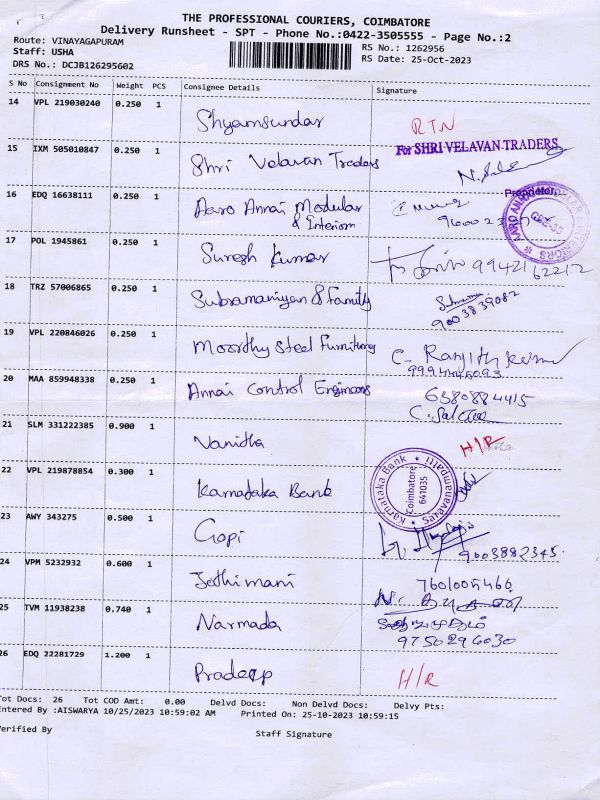 THE PROFESSIONAL COURIERS, COIMBATORE
Delivery Runsheet - SPT - Phone No.:0422-3505555 - Page No.:2
Route: VINAYAGAPURAM RS No.: 1262956
Staff: USHA RS Date: 25-Oct-2023
DRS No.: DCJB126295602
S No Consignment No Weight PCS Consignee Details Signature
14 VPL 219030240 0.250 1 Shyamsundar RTN
15 IXM 505010847 0.250 1 Shri Velavan Traders For SHRI VELAVAN TRADERS
Proprietor
16 EDQ 16638111 0.250 1 Aaro Annai Modular
& Interiors
17 POL 1945861 0.250 1 Suresh Kumar 9942162212
18 TRZ 57006865 0.250 1 Subramaniyan & Family 9003839082
19 VPL 220846026 0.250 1 Moorthy Steel Furniture C. Ranjith Kumar
20 MAA 859948338 0.250 1 Annai Control Engineers 6380884415
21 SLM 331222385 0.900 1 Vanitha H/R
22 VPL 219878854 0.300 1 Karnadaka Bank Karnataka Bank Coimbatore 641035 Saravanampatti
23 AWY 343275 0.500 1 Gopi 9003882345.
24 VPM 5232932 0.600 1 Jothimani 7601005460
25 TVM 11938238 0.740 1 Narmada 9750296030
26 EDQ 22281729 1.200 1 Pradeep H/R
Tot Docs: 26 Tot COD Amt: 0.00 Delvd Docs: Non Delvd Docs: Delvy Pts:
Entered By :AISWARYA 10/25/2023 10:59:02 AM Printed On: 25-10-2023 10:59:15
Verified By Staff Signature